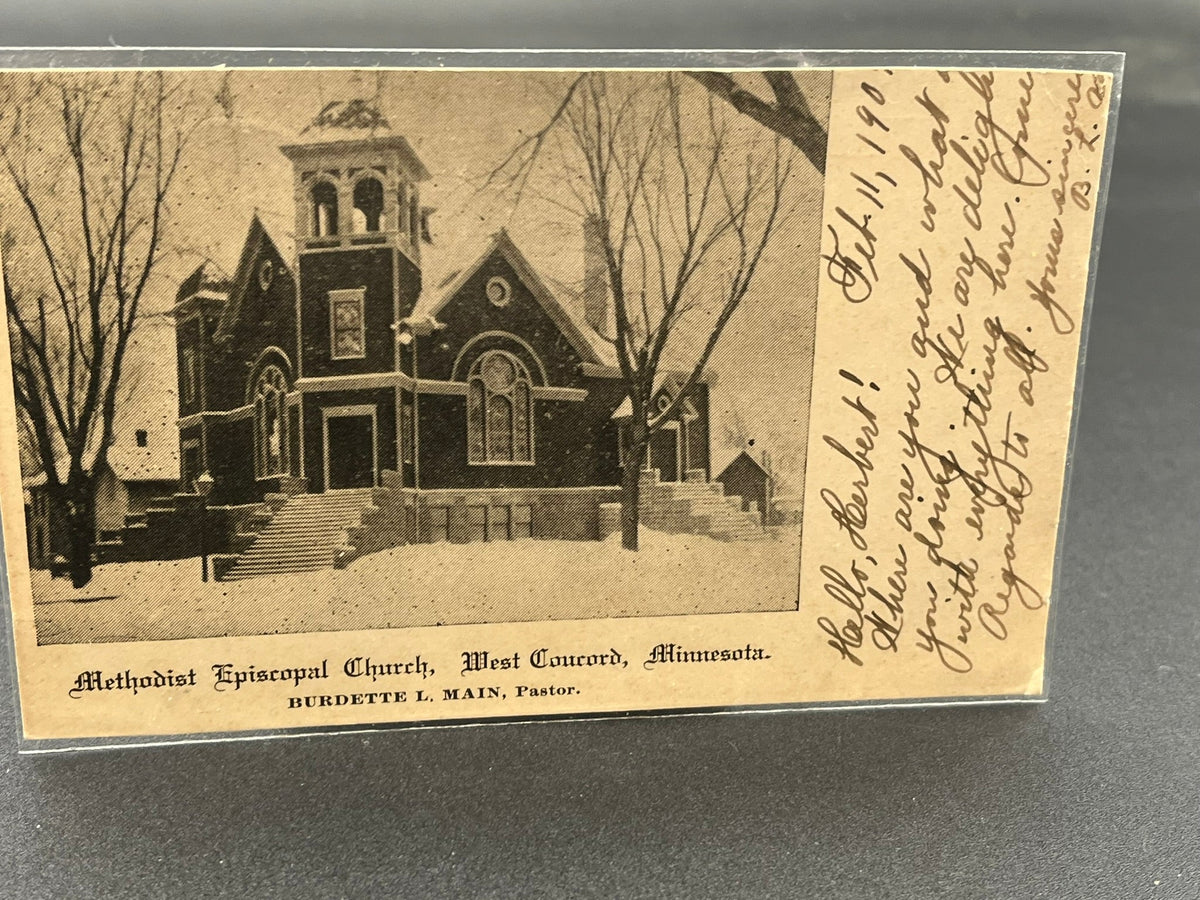 Methodist Episcopal Church, West Concord, Minnesota.
BURDETTE L. MAIN, Pastor.
Feb. 11, 190
Hello, Herbert!
Where are you and what
you doing. We are deligh
with everything here.
Regards to all. Yours sincere
B. L.